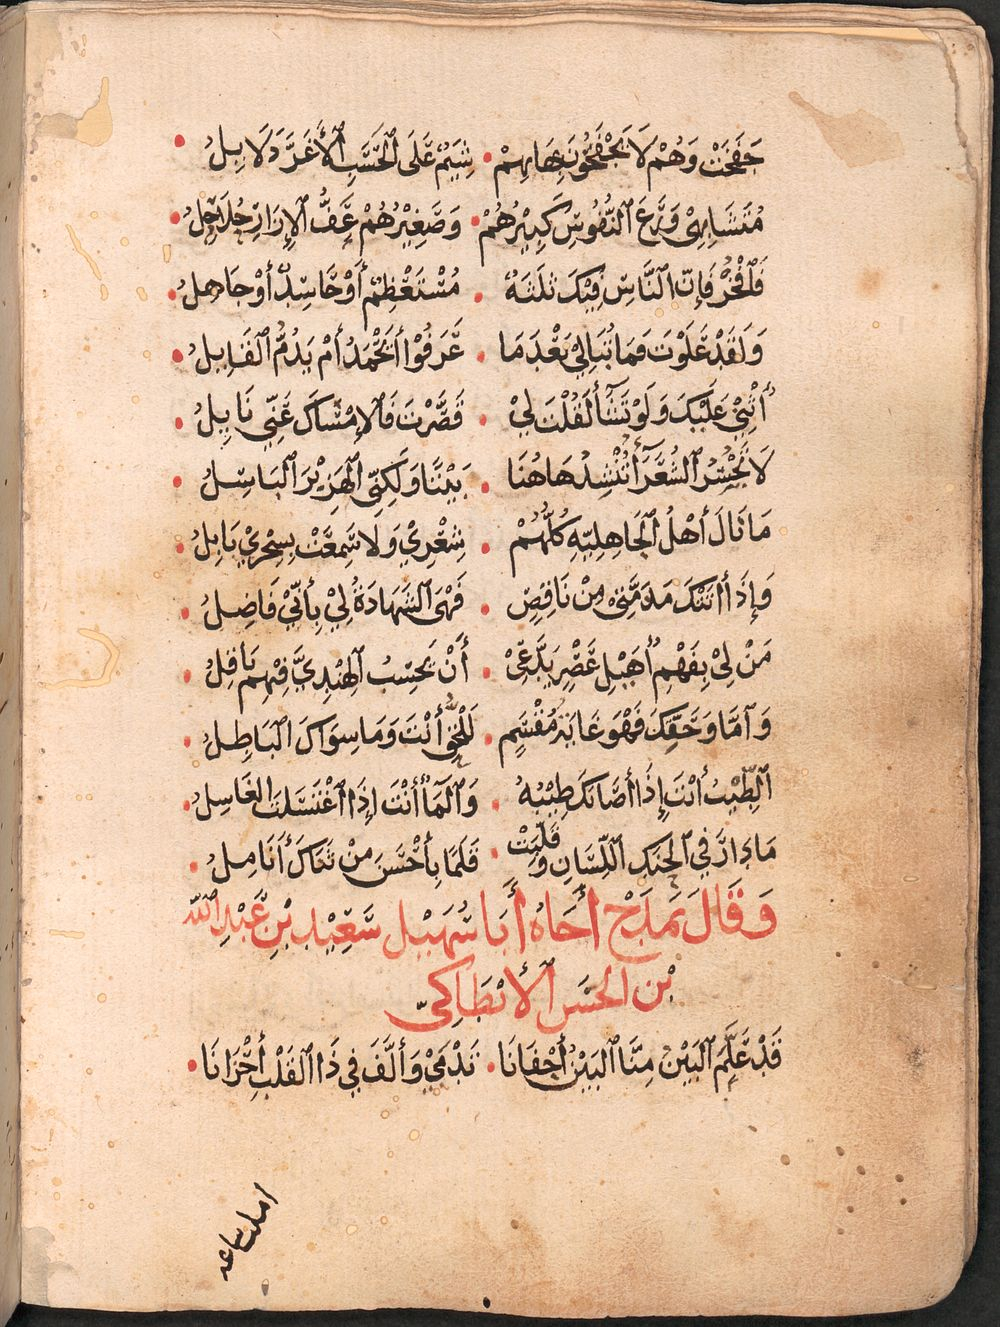 جَفَخَتْ وَهُمْ لَا يَجْفَخُونَ بِهَا بِهِمْ • شِيَمٌ عَلَى الْحَسَبِ الْأَغَرِّ دَلَايِلُ •
مُتَشَابِهِي وَرَعِ النُّفُوسِ كَبِيْرُهُمْ • وَصَغِيْرُهُمْ عَفُّ الْإِزَارِ حُلَاحِلُ •
فَافْخَرْ فَإِنَّ النَّاسَ فِيْكَ ثَلَثَةٌ • مُسْتَعْظِمٌ أَوْ حَاسِدٌ أَوْ جَاهِلُ •
وَلَقَدْ عَلَوْتَ فَمَا تُبَالِيْ بَعْدَ مَا • عَرَفُوْا أَيَحْمَدُ أَمْ يَذُمُّ الْقَايِلُ •
أُثْنِيْ عَلَيْكَ وَلَوْ تَشَأُ لَقُلْتَ لِيْ • قَصَّرْتَ فَالْإِمْسَاكُ عَنِّي نَايِلُ •
لَا تَجْسُرُ الشُّعَرَآءُ تُنْشِدُ هَاهُنَا • بَيْتًا وَلَكِنِّي الْهِزَبْرُ الْبَاسِلُ •
مَا نَالَ أَهْلُ الْجَاهِلِيَّةِ كُلُّهُمْ • شِعْرِيْ وَلَا سَمِعَتْ بِسِحْرِيْ بَابِلُ •
وَإِذَا أَتَتْكَ مَذَمَّتِيْ مِنْ نَاقِصٍ • فَهْيَ الشَّهَادَةُ لِيْ بِأَنِّيْ فَاضِلُ •
مَنْ لِيْ بِفَهْمِ أُهَيْلِ عَصْرٍ يَدَّعِيْ • أَنْ يَحْسِبَ الْهِنْدِيَّ فِيْهِمْ بَاقِلُ •
وَآمَا وَحَقِّكَ فَهْوَ غَايَةُ مُقْسِمٍ • لَلْحَقُّ أَنْتَ وَمَا سِوَاكَ الْبَاطِلُ •
الطِّيْبُ أَنْتَ إِذَا أَصَابَكَ طِيْبُهُ • وَالْمَآءُ أَنْتَ إِذَا اغْتَسَلْتَ الْغَاسِلُ •
مَا دَارَ فِي الْحَنَكِ اللِّسَانُ وَقَلَّبَتْ • قَلَمًا بِأَحْسَنَ مِنْ نَثَاكَ أَنَامِلُ •
وَقَالَ يَمْدَحُ أَخَاهُ أَبَا سُهَيْلٍ سَعِيْدَ بْنَ عَبْدِ اللّٰهِ
بْنِ الْحَسَنِ الْأَنْطَاكِيَّ
قَدْ عَلَّمَ الْبَيْنُ مِنَّا الْبَيْنَ أَجْفَانَا • تَدْمَىْ وَأَلَّفَ فِي ذَا الْقَلْبِ أَحْزَانَا •